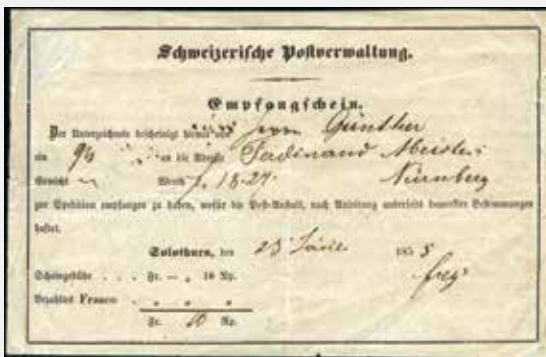 Schweizerische Postverwaltung.
Empfangschein.
Der Unterzeichnete bescheinigt hiemit von Herrn Günther
ein an die Adresse Ferdinand Meister
Gewicht Werth f. 18.27 Nürnberg
zur Spedition empfangen zu haben, wofür die Post-Anstalt, nach Anleitung umseits bemerkter Bestimmungen
haftet.
Solothurn, den 23 1855
Scheingebühr . . . Fr. — „ 10 Rp.
Bezahltes Franco . „ „ „
Fr. 10 Rp.